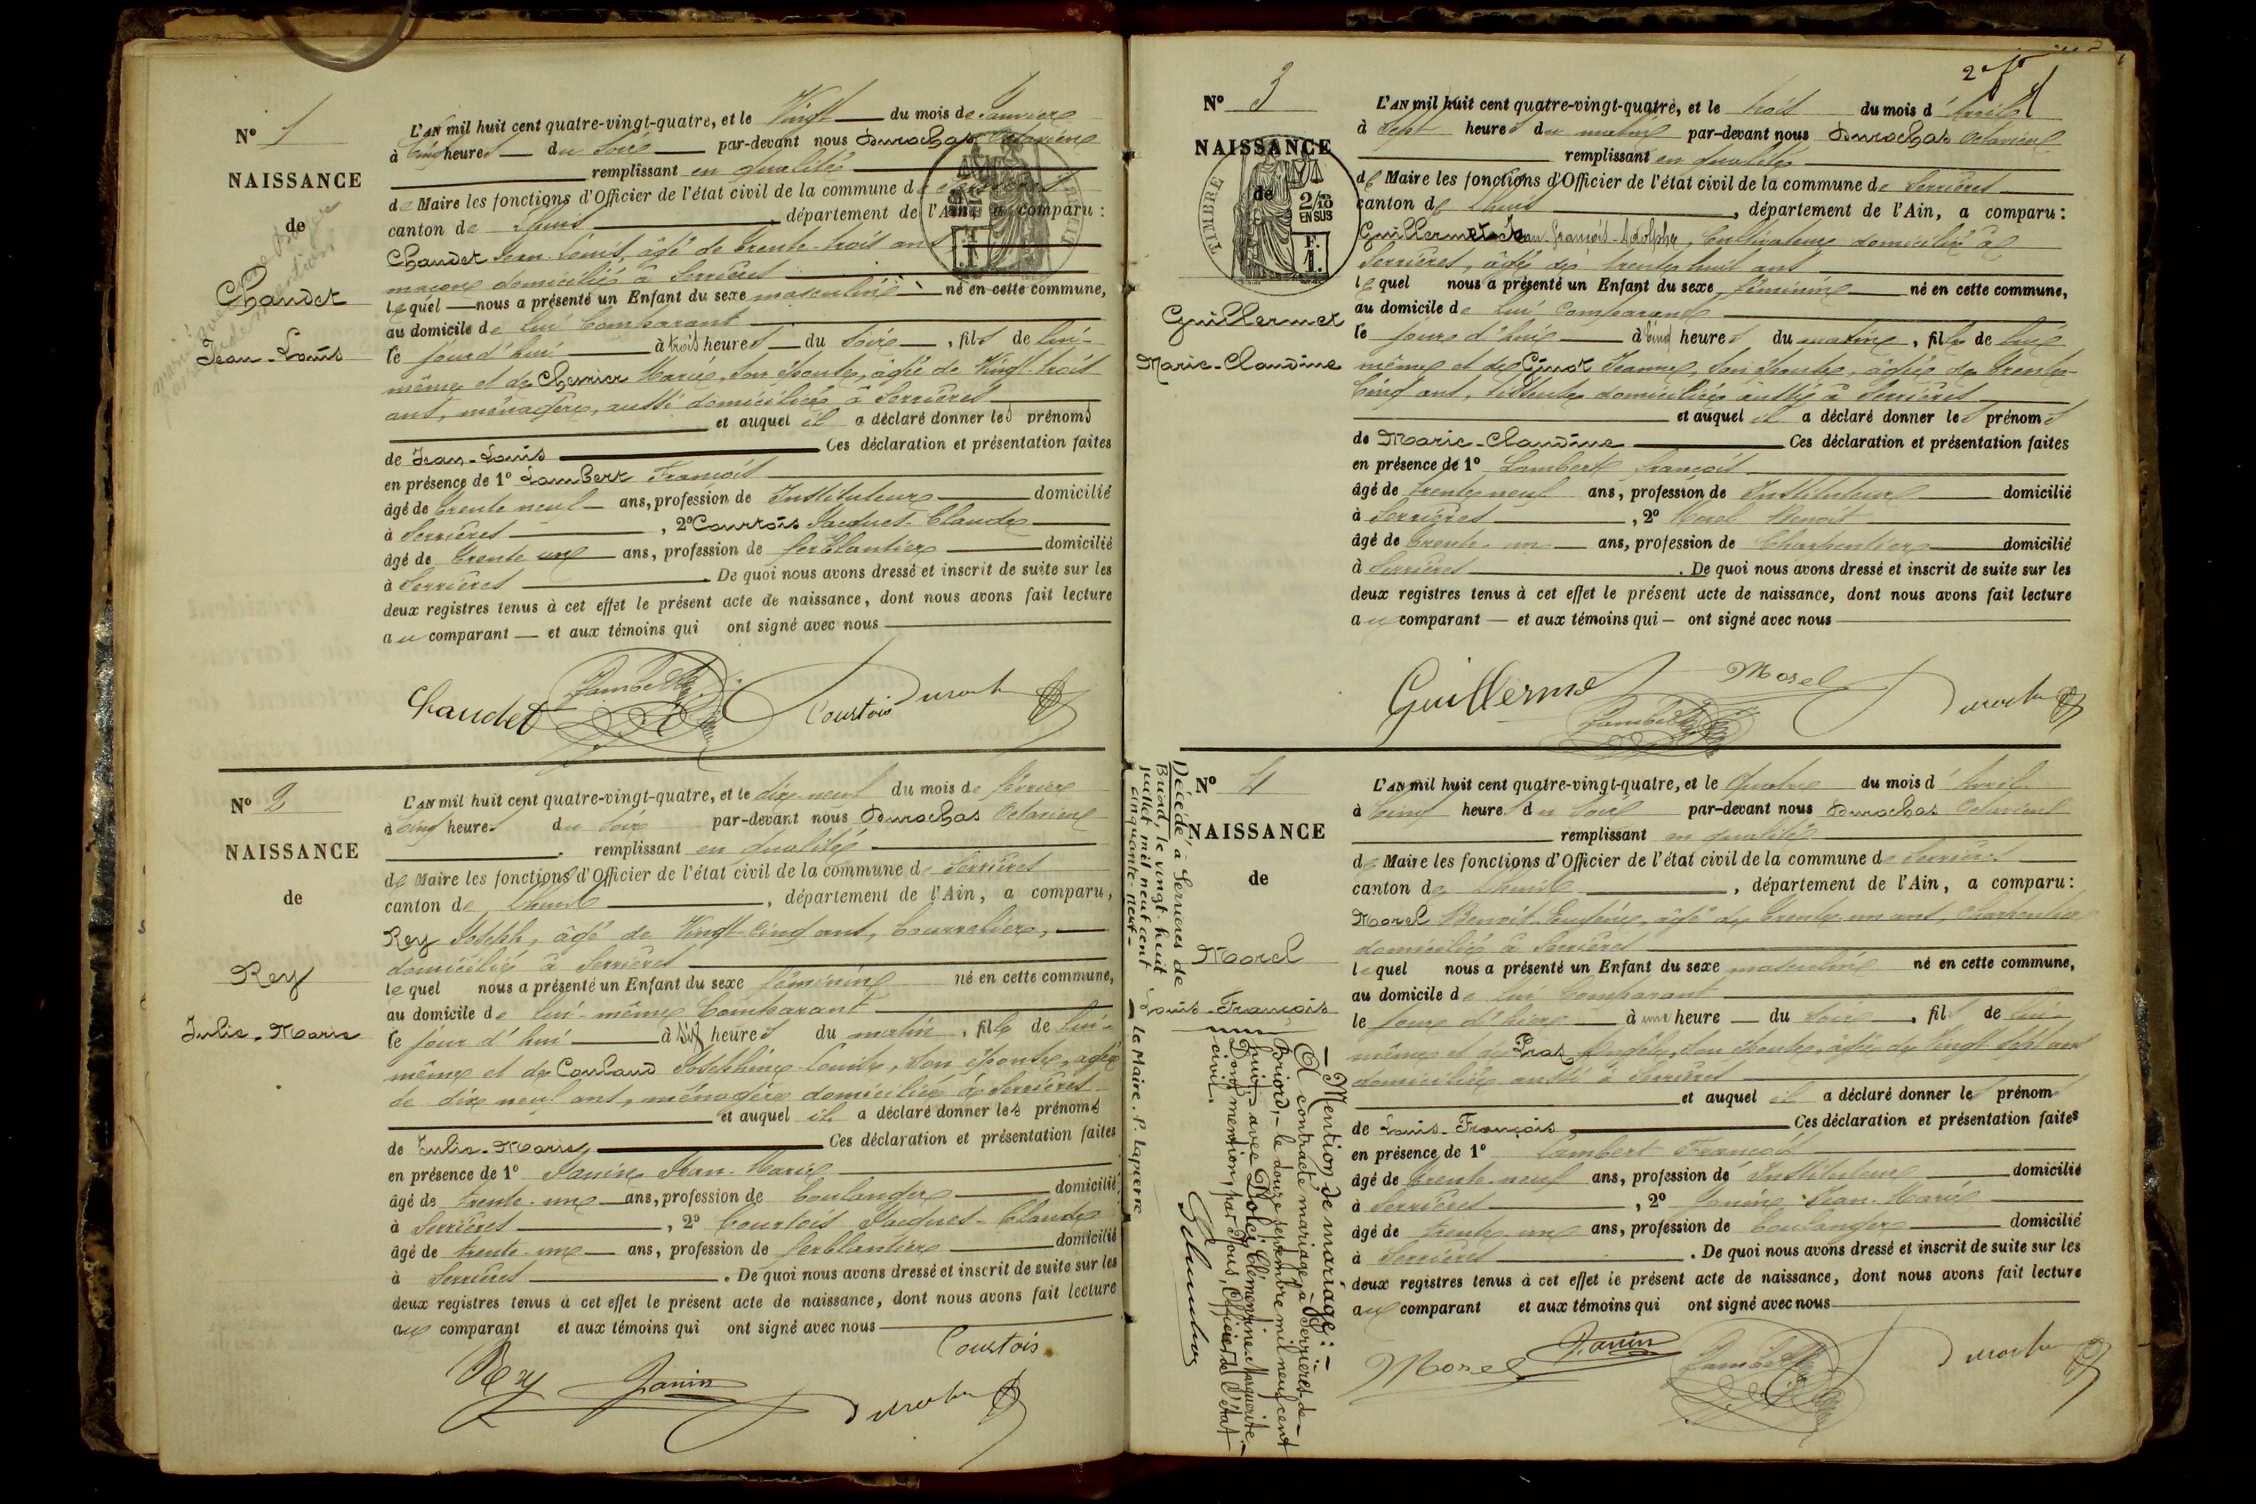 N° 1
NAISSANCE
de
Chaudet
Jean-Louis
L'AN mil huit cent quatre-vingt-quatre, et le Vingt du mois de Janvier
à Cinq heures du Soir par-devant nous Durochat Octavien
remplissant en qualité
de Maire les fonctions d'Officier de l'état civil de la commune de
canton de Lhuis, département de l'Ain, a comparu :
Chaudet Jean-Louis, âgé de trente-trois ans
maçon domicilié à Serrières
lequel nous a présenté un Enfant du sexe masculin né en cette commune,
au domicile de lui Comparant
le jour d'hui à trois heures du soir, fils de lui-
même et de Cherrier Marie, son épouse, âgée de Vingt-trois
ans, ménagère, aussi domiciliée à Serrières
et auquel il a déclaré donner les prénoms
de Jean-Louis Ces déclaration et présentation faites
en présence de 1° Lambert François
âgé de trente neuf ans, profession de Instituteur domicilié
à Serrières, 2° Courtois Jacques-Claude
âgé de trente un ans, profession de ferblantier domicilié
à Serrières. De quoi nous avons dressé et inscrit de suite sur les
deux registres tenus à cet effet le présent acte de naissance, dont nous avons fait lecture
au comparant et aux témoins qui ont signé avec nous
Chaudet Lambert Courtois Durochat
N° 2
NAISSANCE
de
Rey
Julie-Marie
L'AN mil huit cent quatre-vingt-quatre, et le dix-neuf du mois de février
à Cinq heures du soir par-devant nous Durochat Octavien
remplissant en qualité
de Maire les fonctions d'Officier de l'état civil de la commune de Serrières
canton de Lhuis, département de l'Ain, a comparu,
Rey Joseph, âgé de Vingt-Cinq ans, bourrelier,
domicilié à Serrières
lequel nous a présenté un Enfant du sexe féminin né en cette commune,
au domicile de lui-même Comparant
le jour d'hui à six heures du matin, fille de lui-
même et de Coulaud Joséphine Louise, son épouse, âgée
de dix neuf ans, ménagère domiciliée à Serrières
et auquel il a déclaré donner les prénoms
de Julie-Marie Ces déclaration et présentation faites
en présence de 1° Janin Jean-Marie
âgé de trente-un ans, profession de boulanger domicilié
à Serrières, 2° Courtois Jacques-Claude
âgé de trente-un ans, profession de ferblantier domicilié
à Serrières. De quoi nous avons dressé et inscrit de suite sur les
deux registres tenus à cet effet le présent acte de naissance, dont nous avons fait lecture
au comparant et aux témoins qui ont signé avec nous
Courtois
Rey Janin Durochat
N° 3
NAISSANCE
de
TIMBRE
2/10
EN SUS
F.
1.
Guillermet
Marie-Claudine
L'AN mil huit cent quatre-vingt-quatre, et le trois du mois d'Avril
à Sept heures du matin par-devant nous Durochat Octavien
remplissant en qualité
de Maire les fonctions d'Officier de l'état civil de la commune de Serrières
canton de Lhuis, département de l'Ain, a comparu :
Guillermet Jean-François-Adolphe, Cultivateur domicilié à
Serrières, âgé de trente huit ans
lequel nous a présenté un Enfant du sexe féminin né en cette commune,
au domicile de lui Comparant
le jour d'hui à cinq heures du matin, fille de lui
même et de Ginot Jeanne, son épouse, âgée de trente-
Cinq ans, tisseuse domiciliée aussi à Serrières
et auquel il a déclaré donner les prénoms
de Marie-Claudine Ces déclaration et présentation faites
en présence de 1° Lambert François
âgé de trente neuf ans, profession de Instituteur domicilié
à Serrières, 2° Morel Benoit
âgé de trente-un ans, profession de Charpentier domicilié
à Serrières. De quoi nous avons dressé et inscrit de suite sur les
deux registres tenus à cet effet le présent acte de naissance, dont nous avons fait lecture
au comparant et aux témoins qui ont signé avec nous
Guillermet Morel Lambert Durochat
N° 4
NAISSANCE
de
Morel
Louis-François
Décédé à Serrières de
Briord, le vingt-huit
juillet mil neuf cent
cinquante-neuf -
le Maire. P. Laperre
- Mention de mariage : -
A contracté mariage, à Serrières-de-
Briord, le douze septembre mil neuf cent
huit, avec Dolci Clémentine Marguerite.
Dont mention, par Nous, Officier de l'état
civil.
L'AN mil huit cent quatre-vingt-quatre, et le Quatre du mois d'Avril
à Cinq heures du soir par-devant nous Durochat Octavien
remplissant en qualité
de Maire les fonctions d'Officier de l'état civil de la commune de Serrières
canton de Lhuis, département de l'Ain, a comparu :
Morel Benoit Eugène, âgé de trente-un ans, Charpentier
domicilié à Serrières
lequel nous a présenté un Enfant du sexe masculin né en cette commune,
au domicile de lui Comparant
le jour d'hier à une heure du soir, fils de lui-
même et de Prat Angèle, son épouse, âgée de Vingt sept ans
domiciliée aussi à Serrières
et auquel il a déclaré donner les prénoms
de Louis-François Ces déclaration et présentation faites
en présence de 1° Lambert François
âgé de trente-neuf ans, profession de Instituteur domicilié
à Serrières, 2° Janin Jean-Marie
âgé de trente un ans, profession de boulanger domicilié
à Serrières. De quoi nous avons dressé et inscrit de suite sur les
deux registres tenus à cet effet le présent acte de naissance, dont nous avons fait lecture
au comparant et aux témoins qui ont signé avec nous
Morel Janin Lambert Durochat